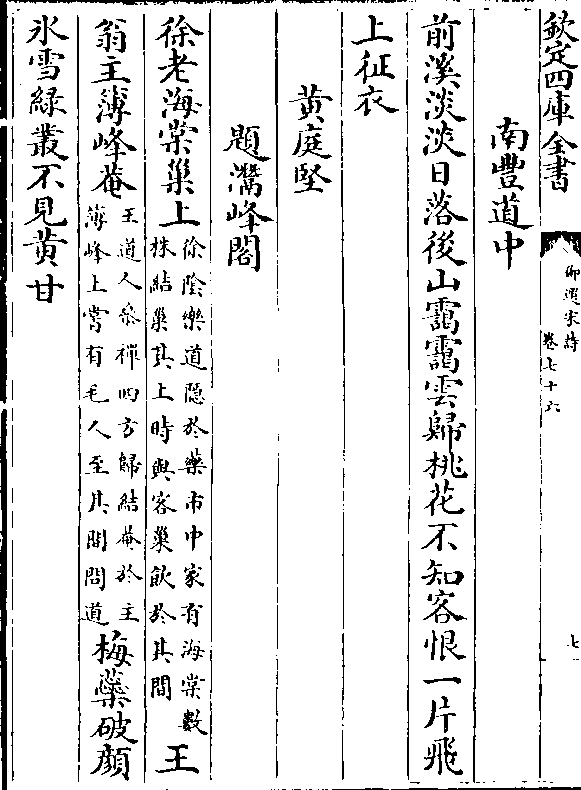 欽定四庫全書
御選宋詩
卷七十六
七
南豐道中
前溪淡淡日落後山靄靄雲歸桃花不知客恨一片飛
上征衣
黄庭堅
題灊峰閣
徐老海棠巢上徐隂樂道隠於藥市中家有海棠數
株結巢其上時與客巢飲於其間王
翁主簿峰菴王道人叅禪四方歸結菴於主
簿峰上嘗有毛人至其間問道梅蘂破顔
氷雪緑叢不見黄甘